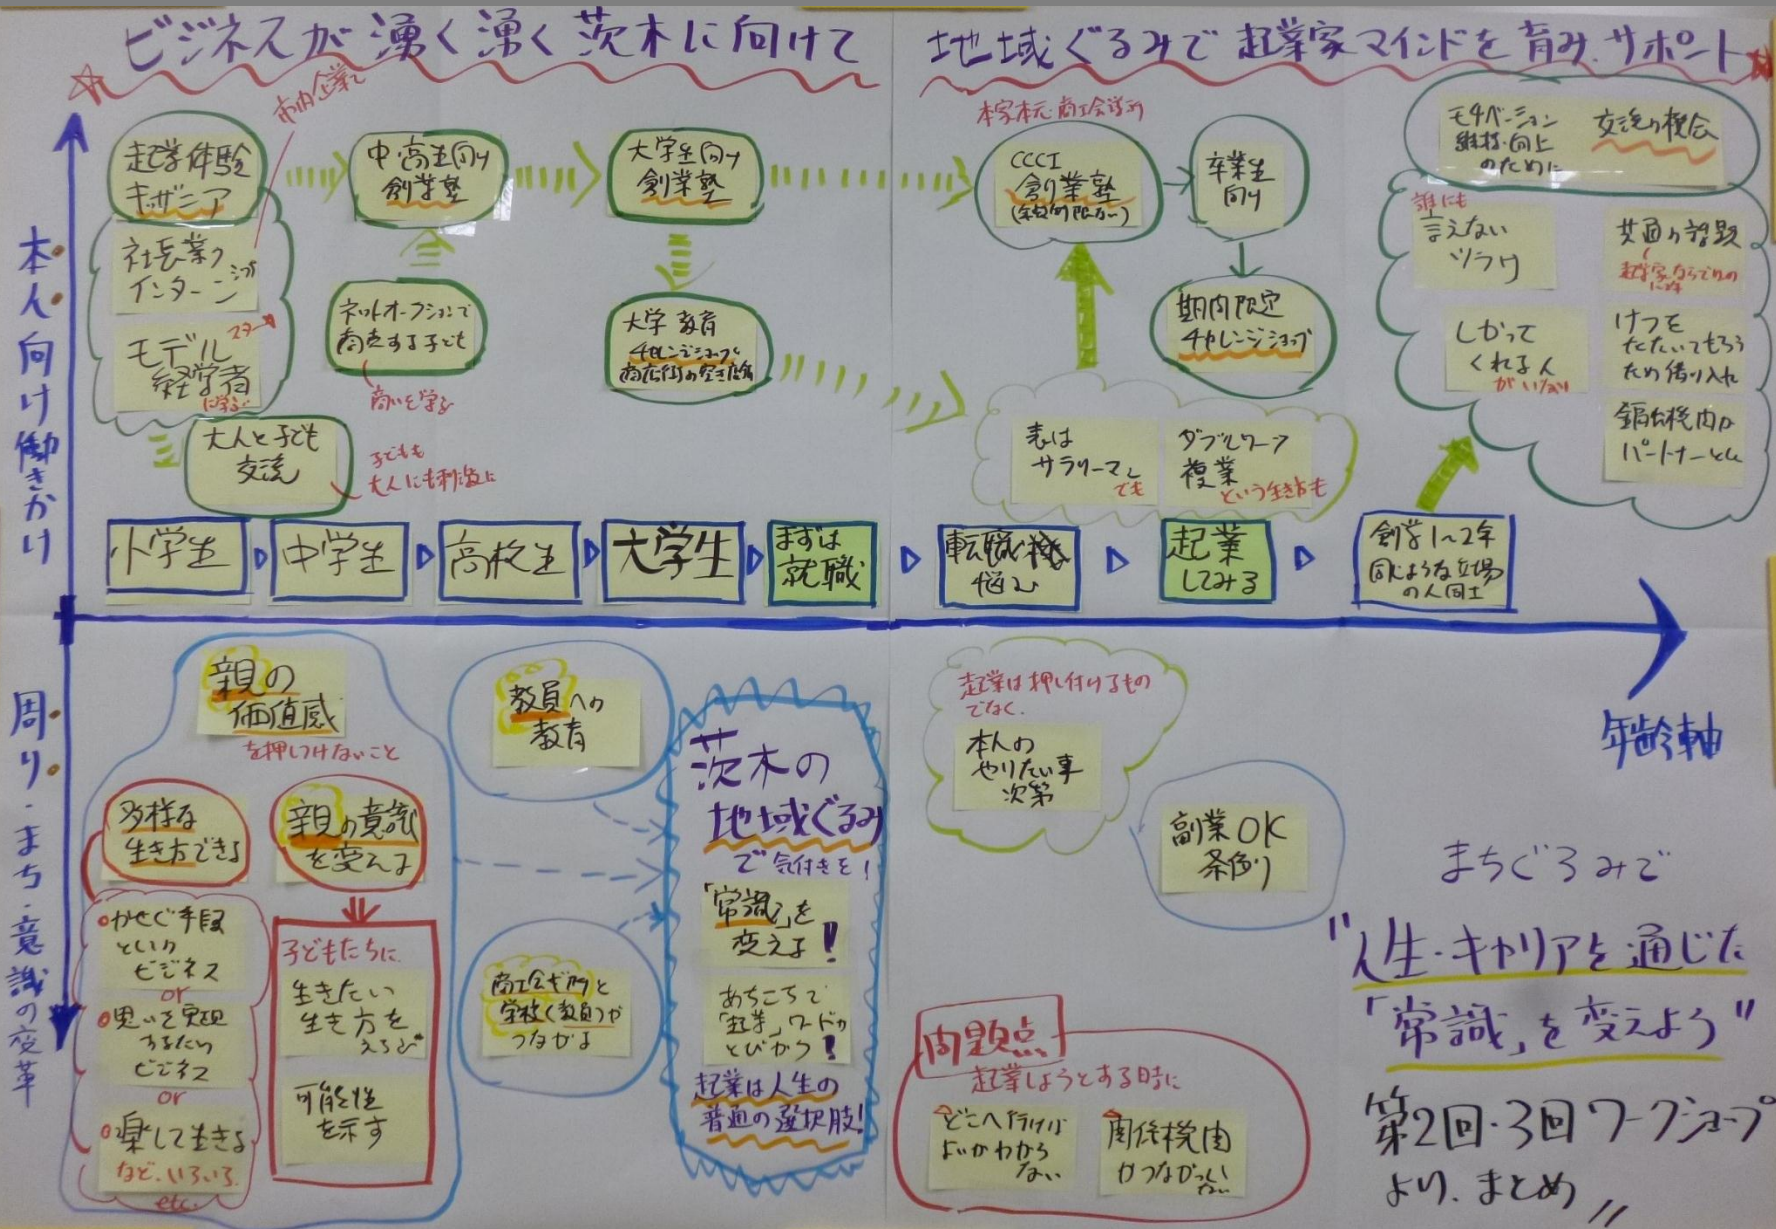 ビジネスが湧く湧く茨木に向けて
地域ぐるみで起業家マインドを育み、サポート
本人向け働きかけ
市内企業で
起業体験
キッザニア
社長業の
インターンシップ
モデル
経営者
に学ぶ
大人と子ども
交流
子どもも
大人にも刺激に
中・高生向け
創業塾
ネットオークションで
商売する子ども
商いを学ぶ
大学生向け
創業塾
大学教育
チャレンジショップを
商店街の空き店舗
本家本元・商工会議所
CCCI
創業塾
卒業生
向け
期間限定
チャレンジショップ
表は
サラリーマン
でも
ダブルワーク
複業
という生き方も
モチベーション
維持・向上
のために
交流の機会
誰にも
言えない
ツラサ
共通の課題
起業家ならではの
しかって
くれる人
がいない
けつを
たたいてもらう
ため借り入れ
金融機関が
パートナーとして
小学生
中学生
高校生
大学生
まずは
就職
転職
悩む
起業
してみる
創業1〜2年
同じような立場
の人同士
年齢軸
周り・まち・意識の変革
親の
価値感
を押しつけないこと
多様な
生き方できる
親の意識
を変える
かせぐ手段
としての
ビジネス
or
思いを実現
するための
ビジネス
or
楽して生きる
など、いろいろ
etc.
子どもたちに
生きたい
生き方を
えらぶ
可能性
を示す
教員への
教育
商工会ギ所と
学校(教員)が
つながる
茨木の
地域ぐるみ
で気付きを!
「常識」を
変える!
あちこちで
「起業」ワードが
とびかう!
起業は人生の
普通の選択肢!
起業は押し付けるもの
でなく、
本人の
やりたい事
次第
副業OK
条例
問題点
起業しようとする時に
どこへ行けば
よいかわから
ない
関係機関
がつながって
いない
まちぐるみで
"人生・キャリアを通じた
「常識」を変えよう"
第2回・3回ワークショップ
より、まとめ